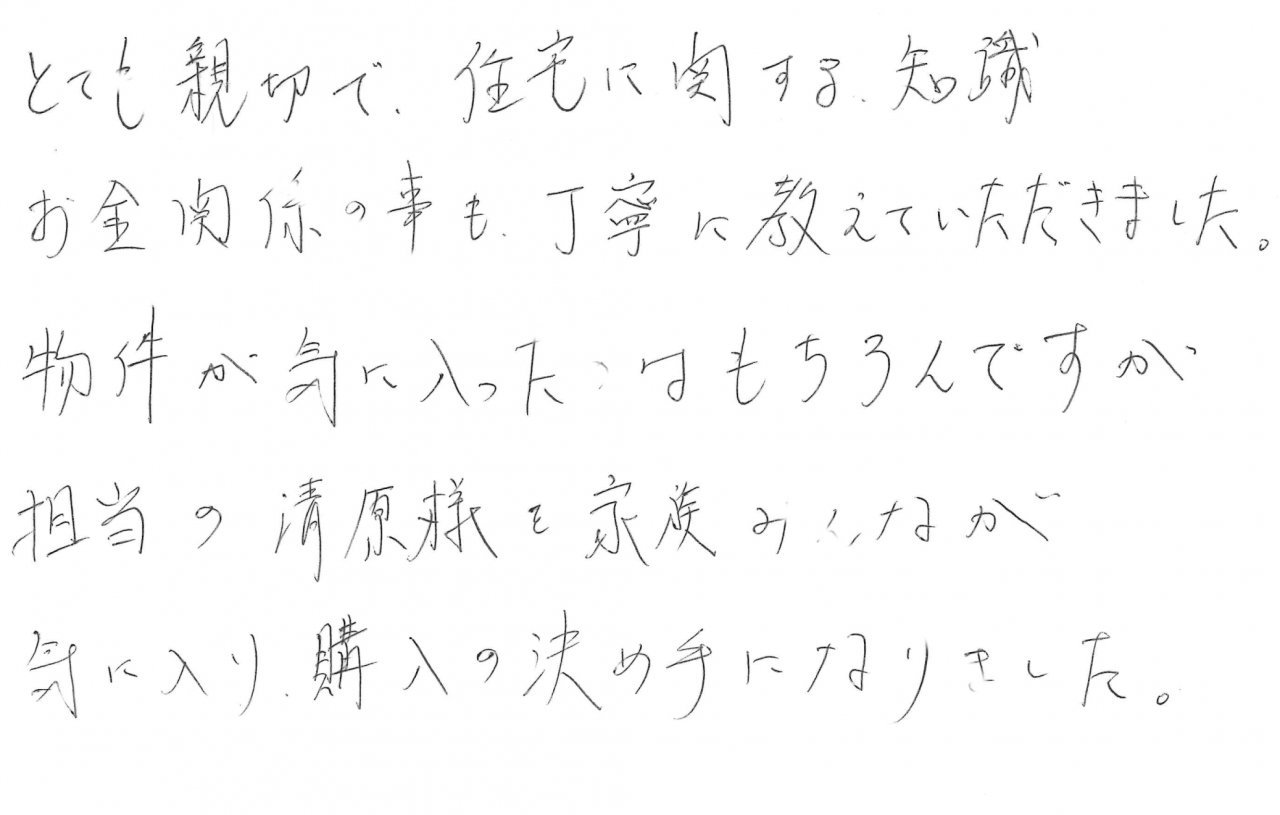 とても親切で、住宅に関する、知識
お金関係の事も、丁寧に教えていただきました。
物件が気に入ったのはもちろんですが
担当の清原様を家族みんなが
気に入り、購入の決め手になりました。